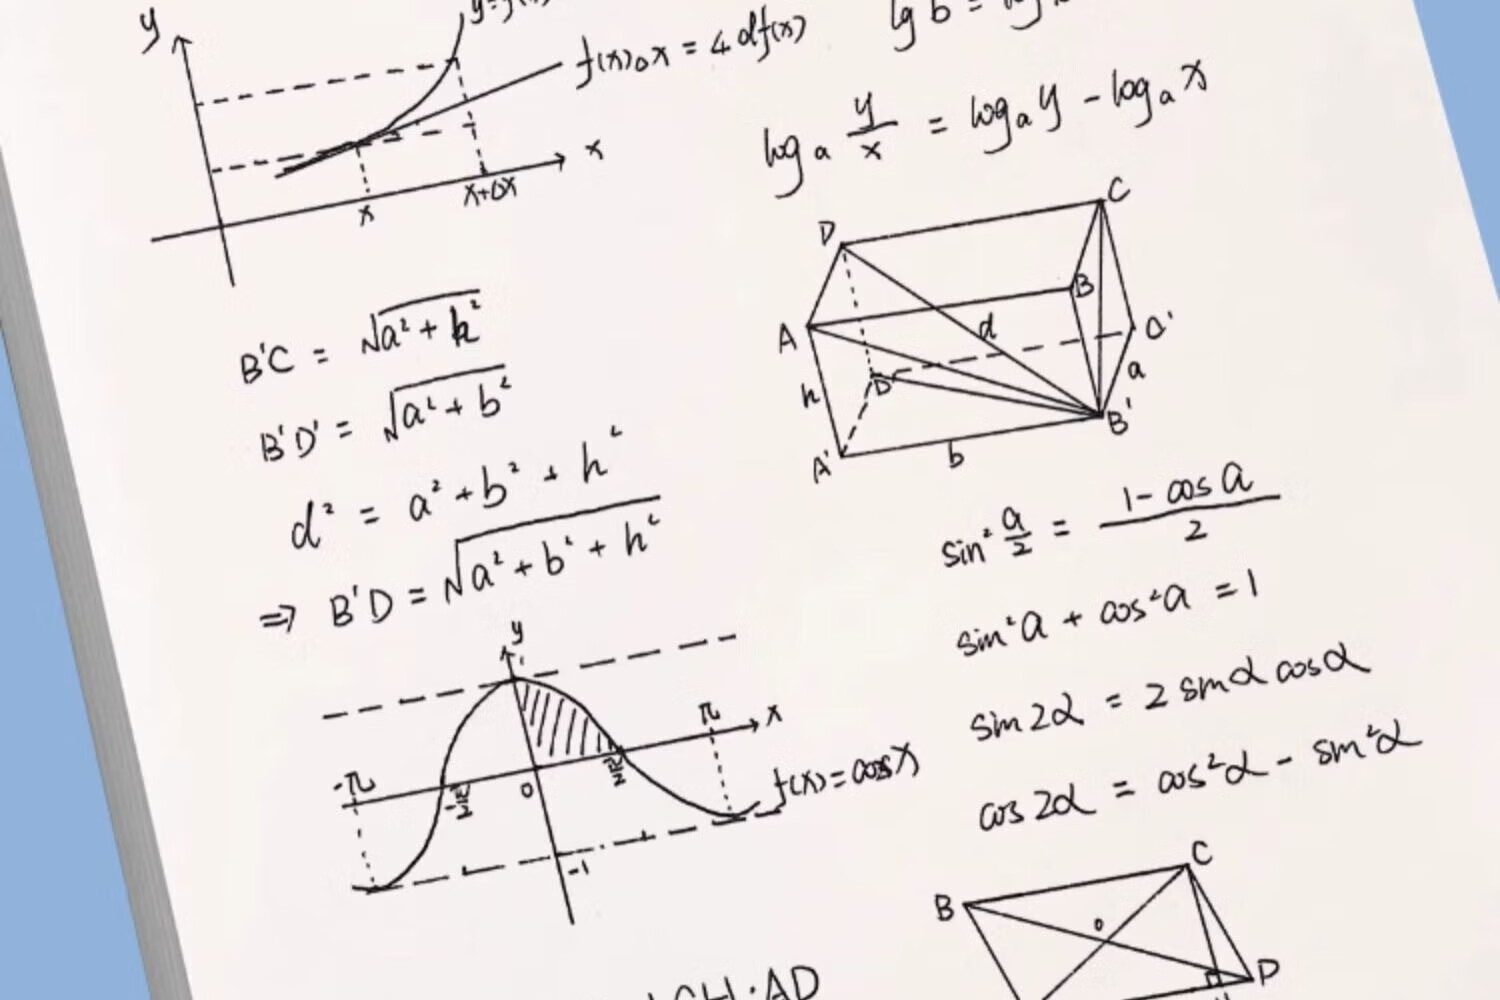 y
f(x)△x = 4 df(x)
x
x
x+△x
lg b =
logₐ y/x = logₐ y - logₐ x
D
C
A
B
d
C'
h
D'
a
A'
b
B'
B'C = √(a² + h²)
B'D' = √(a² + b²)
d² = a² + b² + h²
⇒ B'D = √(a² + b² + h²)
sin² a/2 = (1 - cos a)/2
sin²a + cos²a = 1
sin 2α = 2 sin α cos α
cos 2α = cos²α - sin²α
y
1
π
x
-π
-π/2
0
π/2
f(x) = cos x
-1
B
C
o
D
CH·AD